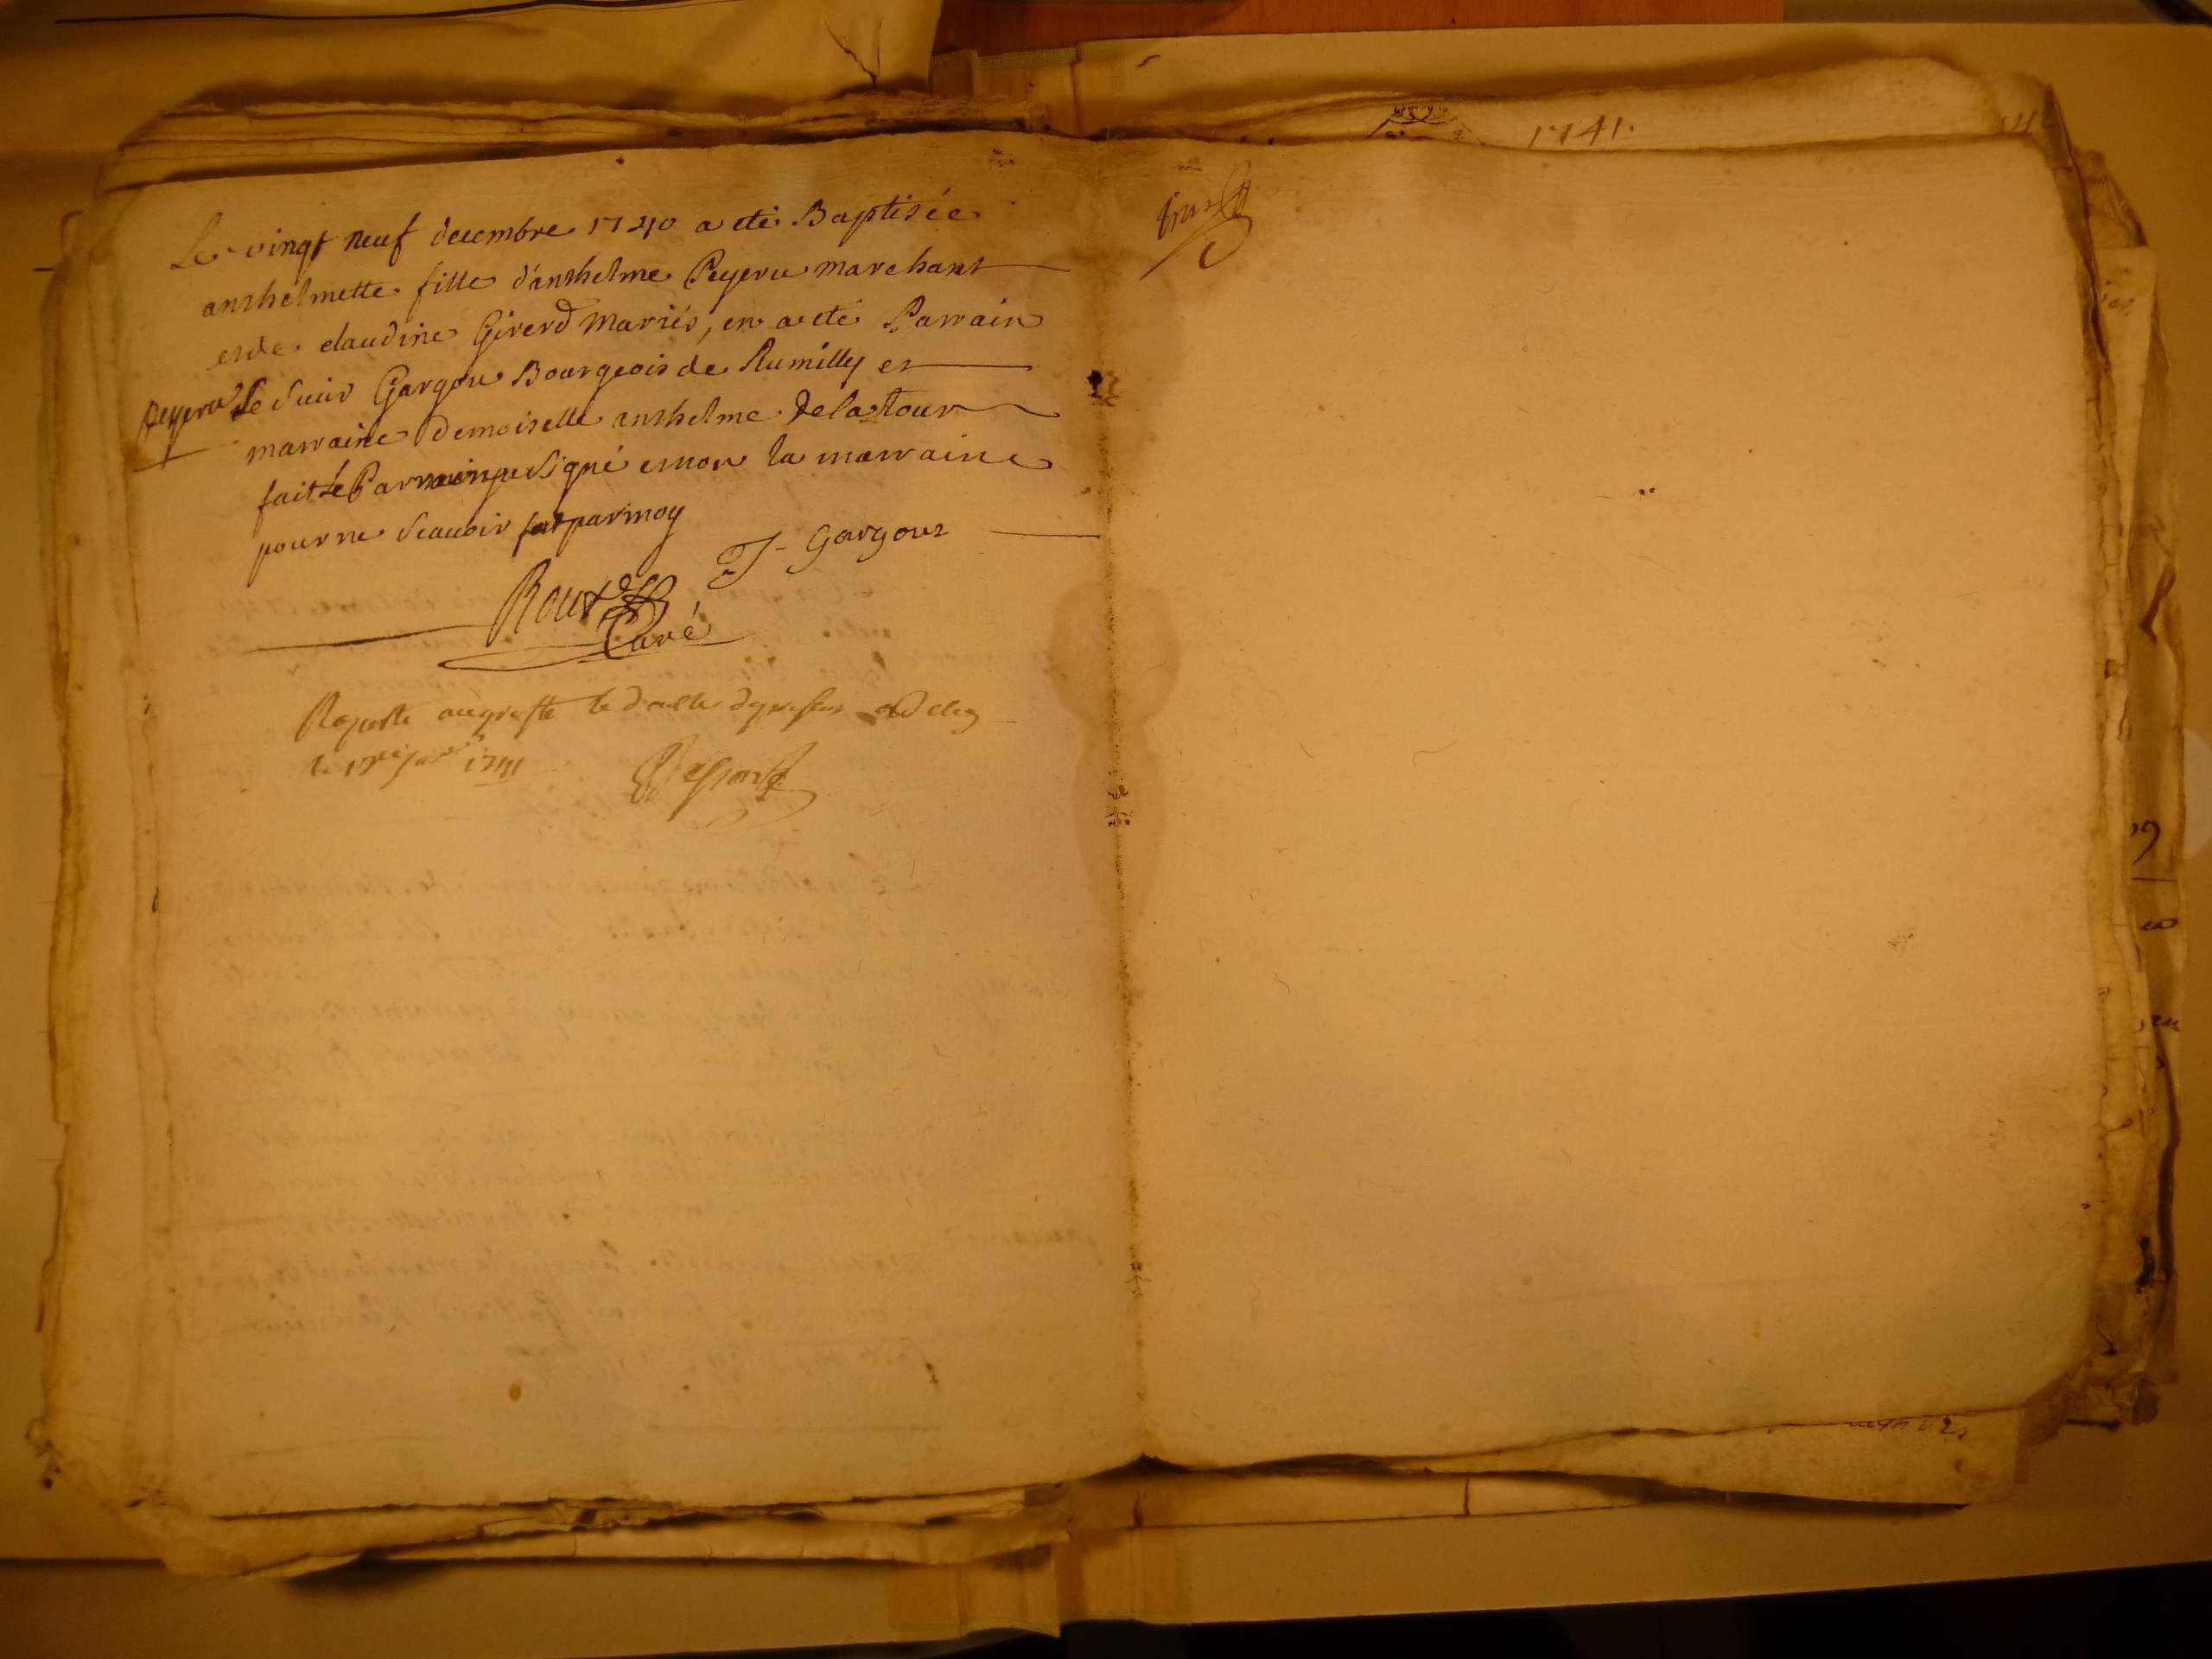 1741.
Le vingt neuf decembre 1740 a eté Baptisée
anthelmette fille d'anthelme Peyeru marchant
et de claudine Girerd mariés, en a eté Parrain
Peyeru
le Sieur Gargou Bourgeois de Rumilly et
marraine demoiselle anthelme de la tour
fait Le Parrain signé et non la marraine
pour ne scauoir fait par moy
J Gargoux
Roux
Curé
Raporté au greffe le double
le 1741